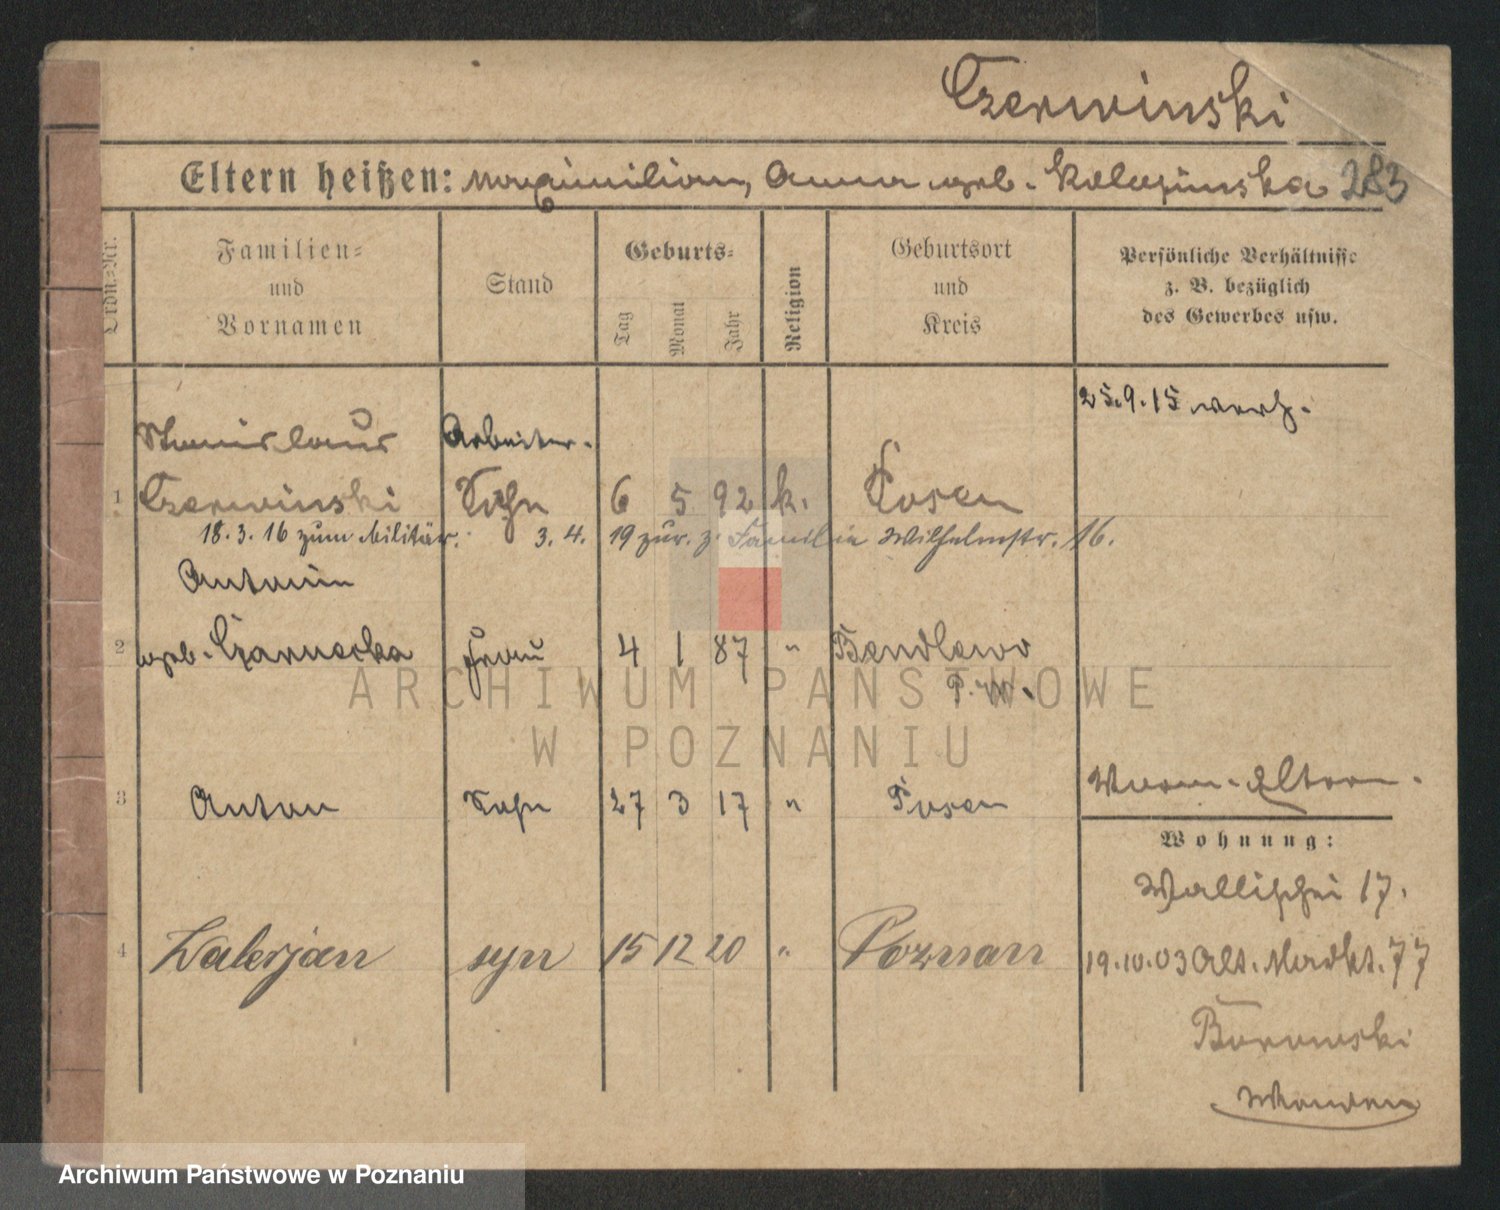 Czerwinski
Eltern heißen: Maximilian, Anna geb. Kolozinska 283
Ordn.=Nr.
Familien= und Vornamen
Stand
Geburts=
Tag
Monat
Jahr
Religion
Geburtsort und Kreis
Persönliche Verhältnisse z. B. bezüglich des Gewerbes usw.
25.9.15 verh.
Stanislaus Arbeiter.
1 Czerwinski Sohn 6 5 92 k. Posen
18.3.16 zum Militär. 3.4.19 zur. z. Familie Wilhelmstr. 16.
Antonin
2 geb. Czarnecka Frau 4 1 87 " Bendlewo
P. W.
3 Anton Sohn 27 3 17 " Posen
Vorm. Eltern.
Wohnung:
Wallischei 17.
4 Walerjan syn 15 12 20 " Poznan
19.10.03 Alt. Markt. 77
Borowski
ARCHIWUM PAŃSTWOWE
W POZNANIU
Archiwum Państwowe w Poznaniu